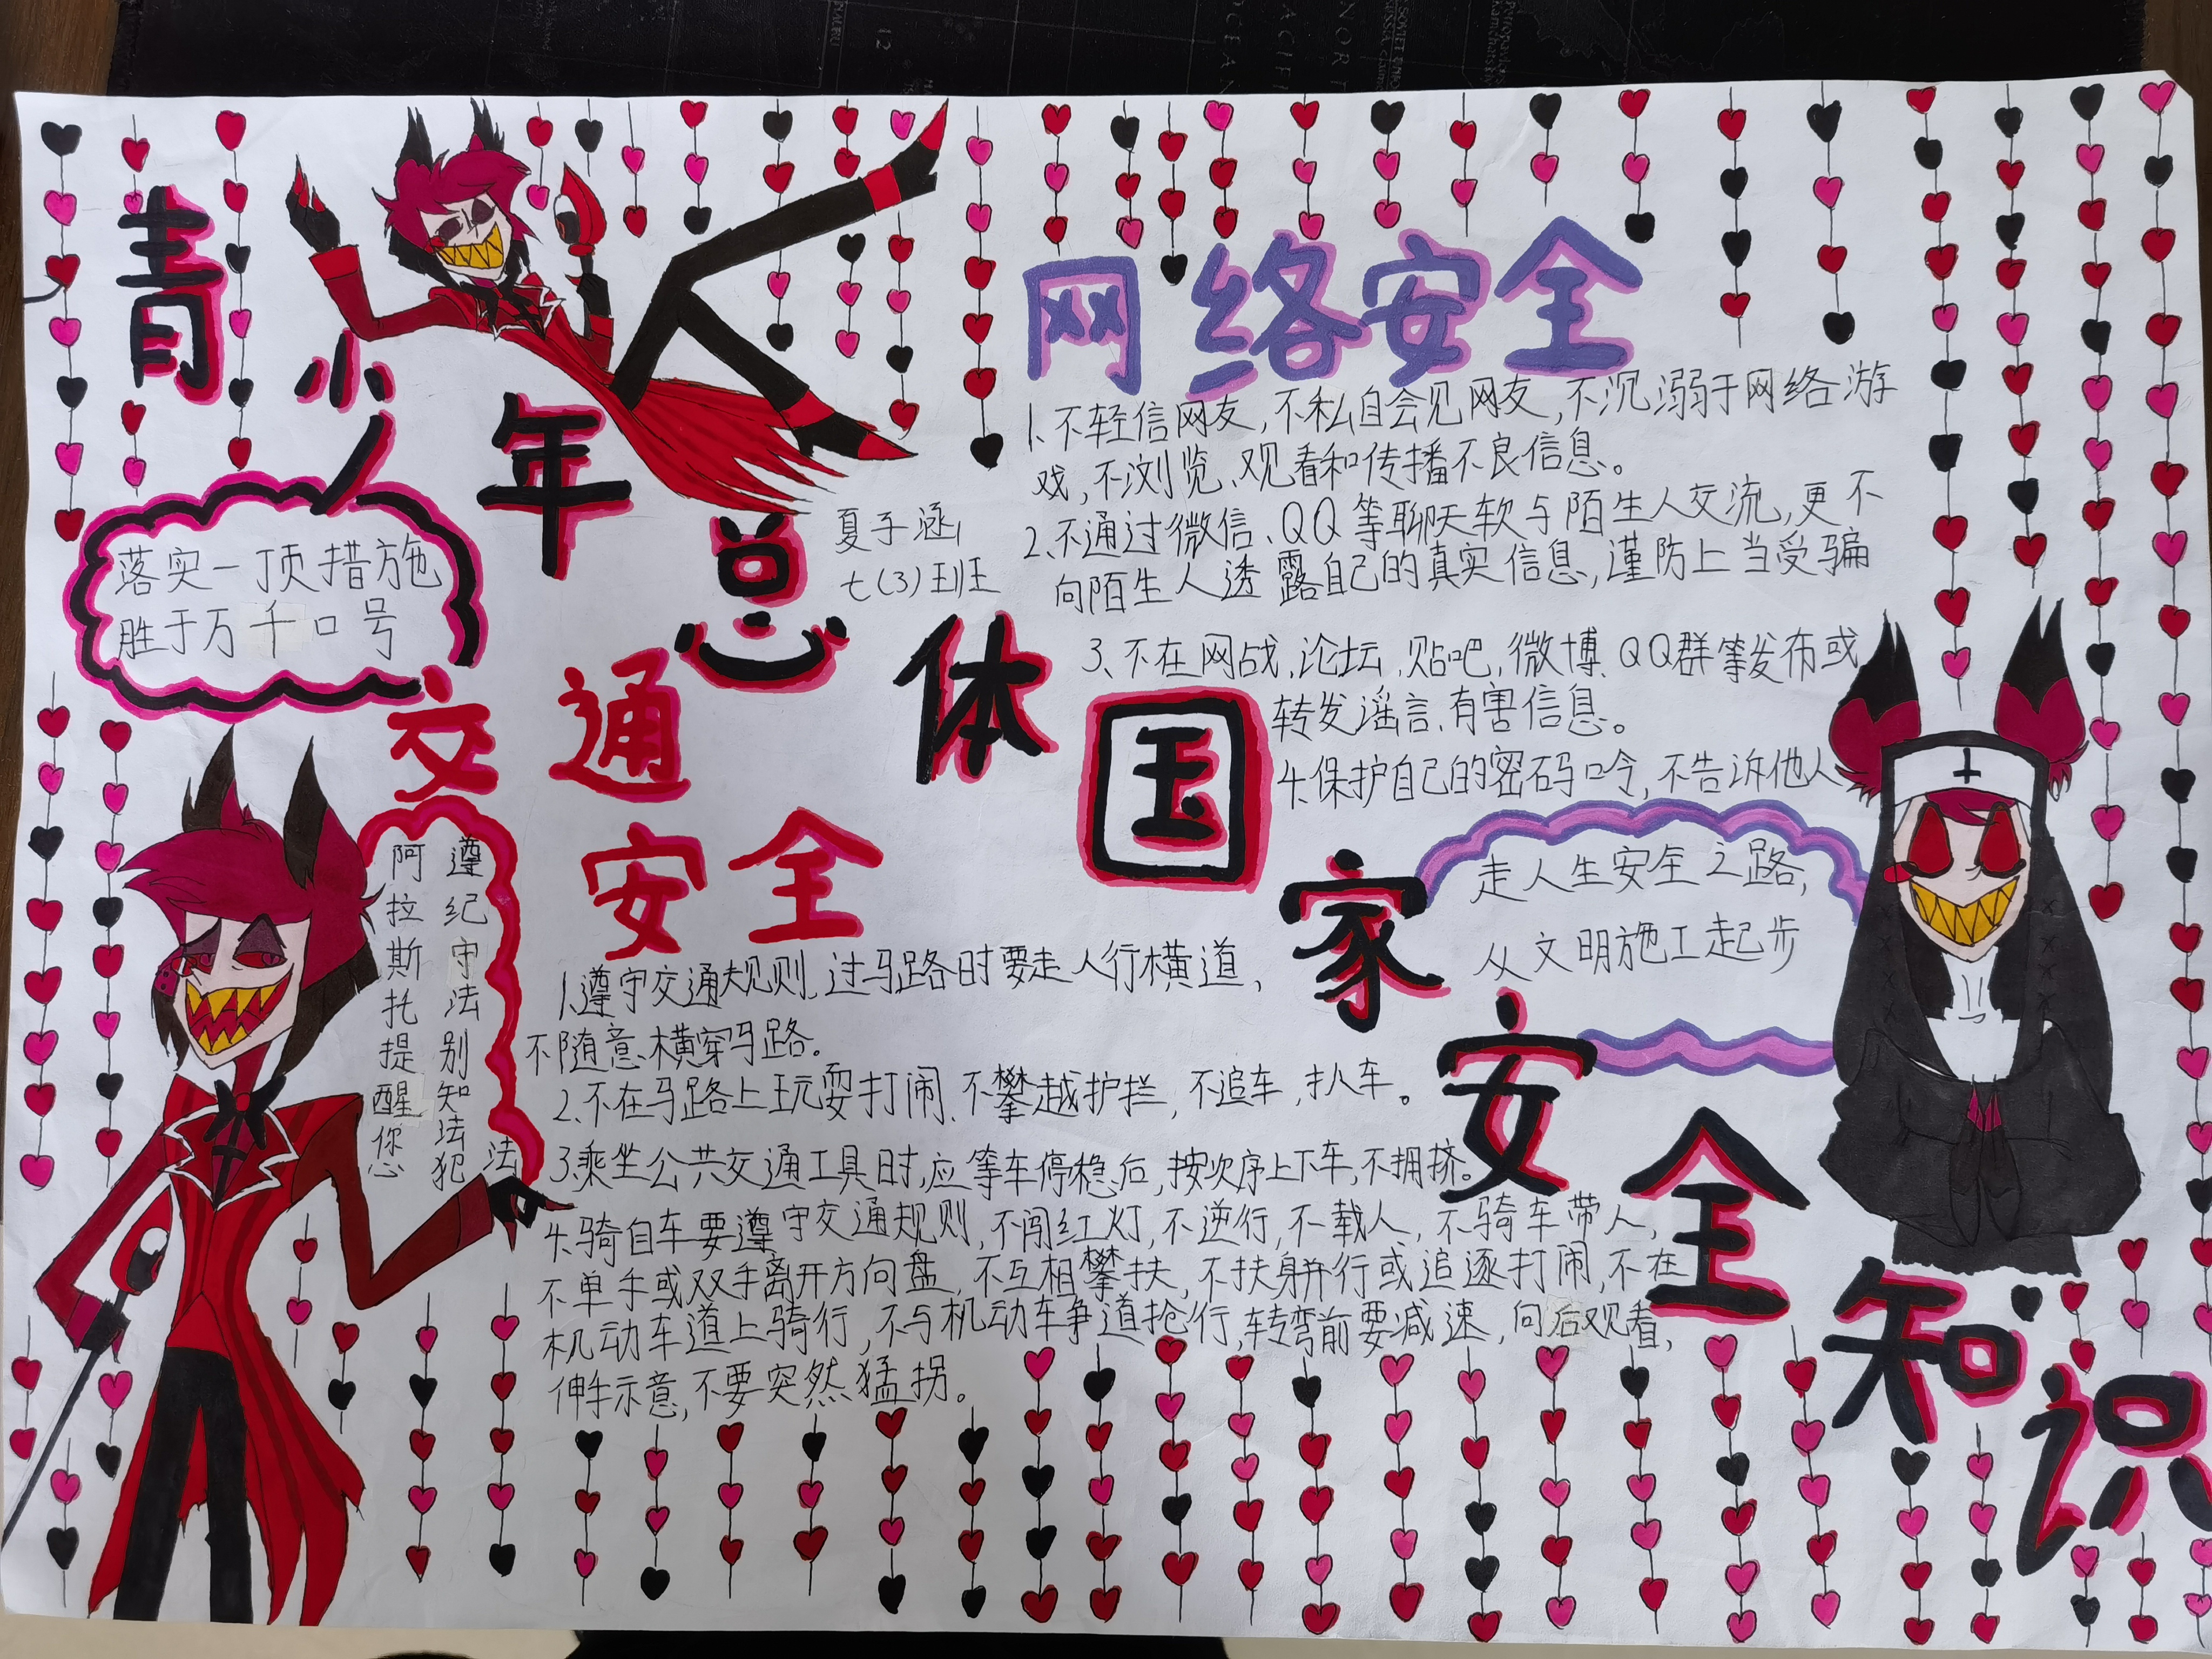 青少年总体国家安全知识
夏子涵
七(3)班
落实一顶措施
胜于万千口号
网络安全
1.不轻信网友,不私自会见网友,不沉溺于网络游
戏,不浏览、观看和传播不良信息。
2.不通过微信、QQ等聊天软与陌生人交流,更不
向陌生人透露自己的真实信息,谨防上当受骗
3.不在网战,论坛,贴吧,微博、QQ群等发布或
转发谣言、有害信息。
4.保护自己的密码口吟,不告诉他人
走人生安全之路,
从文明施工起步
交通
安全
遵纪守法别知法犯法
阿拉斯托提醒你
1.遵守交通规则、过马路时要走人行横道、
不随意横穿马路。
2.不在马路上玩耍打闹、不攀越护拦,不追车,扒车。
3.乘坐公共交通工具时,应等车停稳后,按次序上下车,不拥挤。
4.骑自车要遵守交通规则,不闯红灯,不逆行,不载人,不骑车带人,
不单手或双手离开方向盘,不互相攀扶,不扶身并行或追逐打闹,不在
机动车道上骑行,不与机动车争道抢行,转弯前要减速,向后观看,
伸手示意,不要突然猛拐。